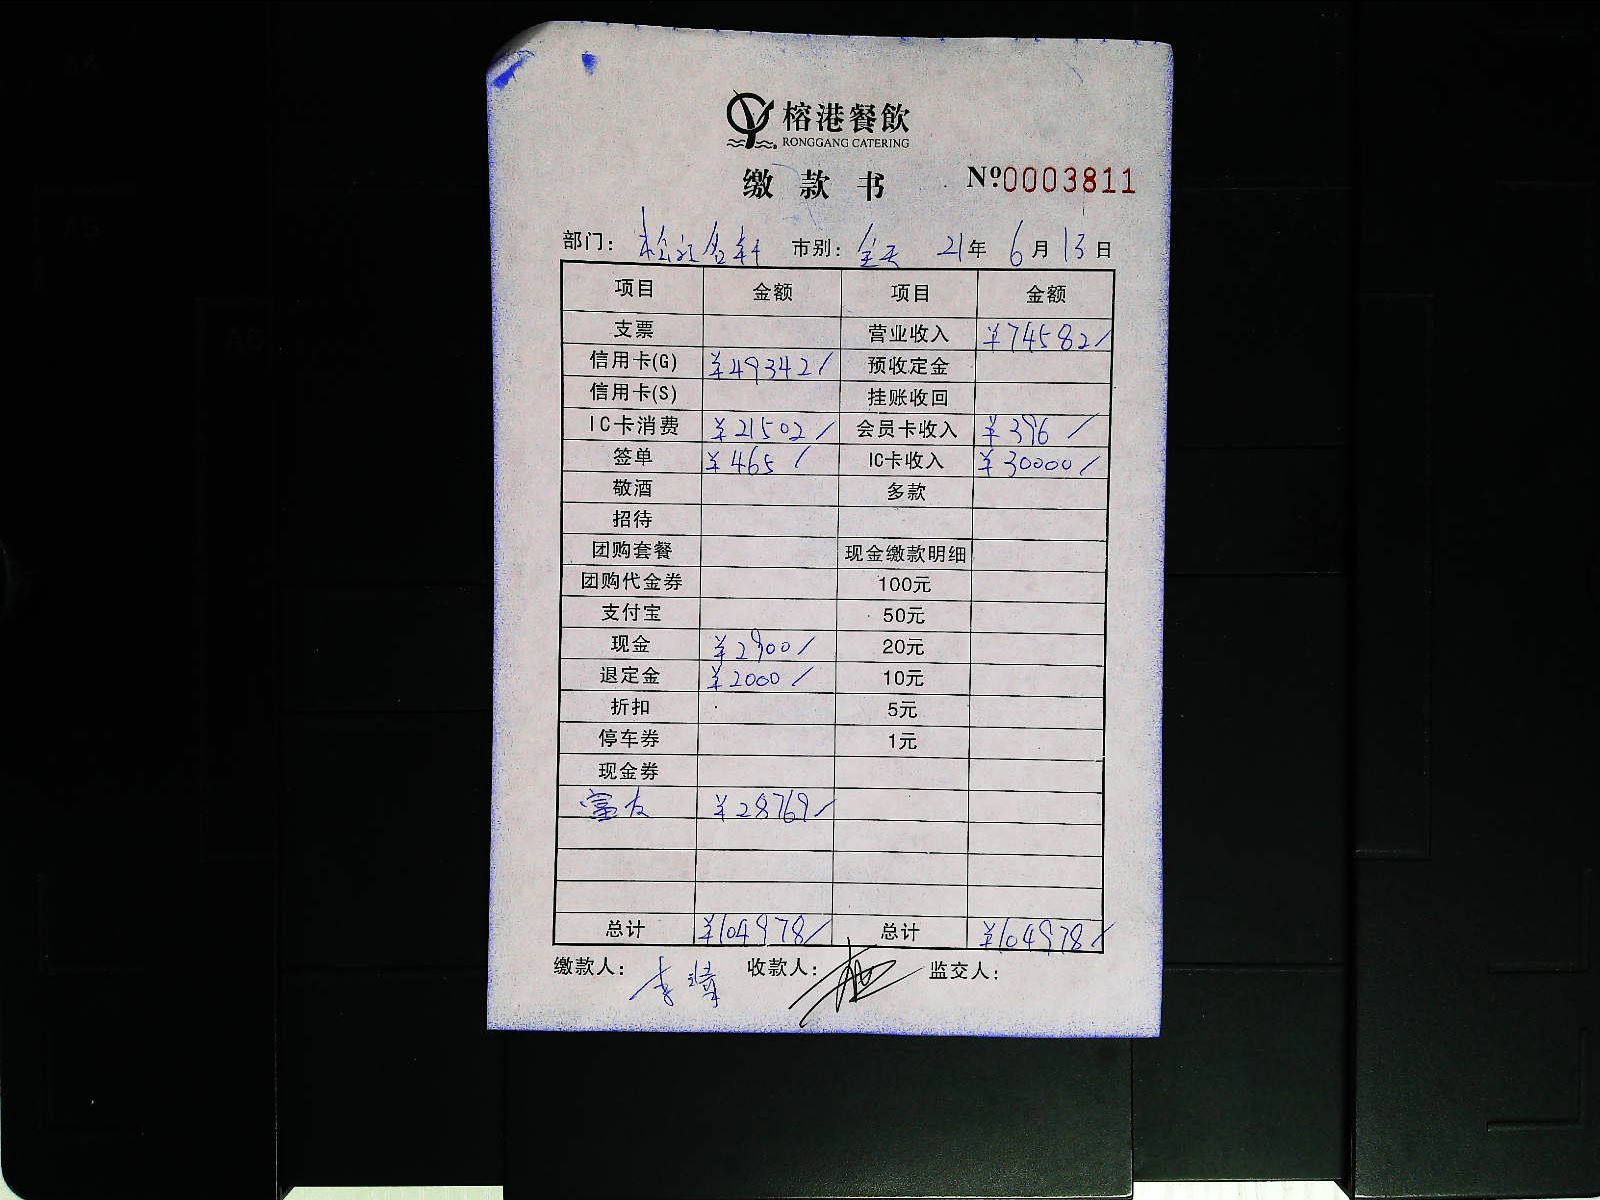 榕港餐飲
RONGGANG CATERING
缴款书 Nº:0003811
部门: 名轩 市别: 全天 21年 6月 13日
项目 金额 项目 金额
支票 营业收入 ¥74582/
信用卡(G) ¥49342/ 预收定金
信用卡(S) 挂账收回
IC卡消费 ¥21502/ 会员卡收入 ¥396/
签单 ¥465/ IC卡收入 ¥30000/
敬酒 多款
招待
团购套餐 现金缴款明细
团购代金券 100元
支付宝 50元
现金 ¥2900/ 20元
退定金 ¥2000/ 10元
折扣 5元
停车券 1元
现金券
富友 ¥28769/
总计 ¥104978/ 总计 ¥104978/
缴款人: 李 收款人: 监交人: